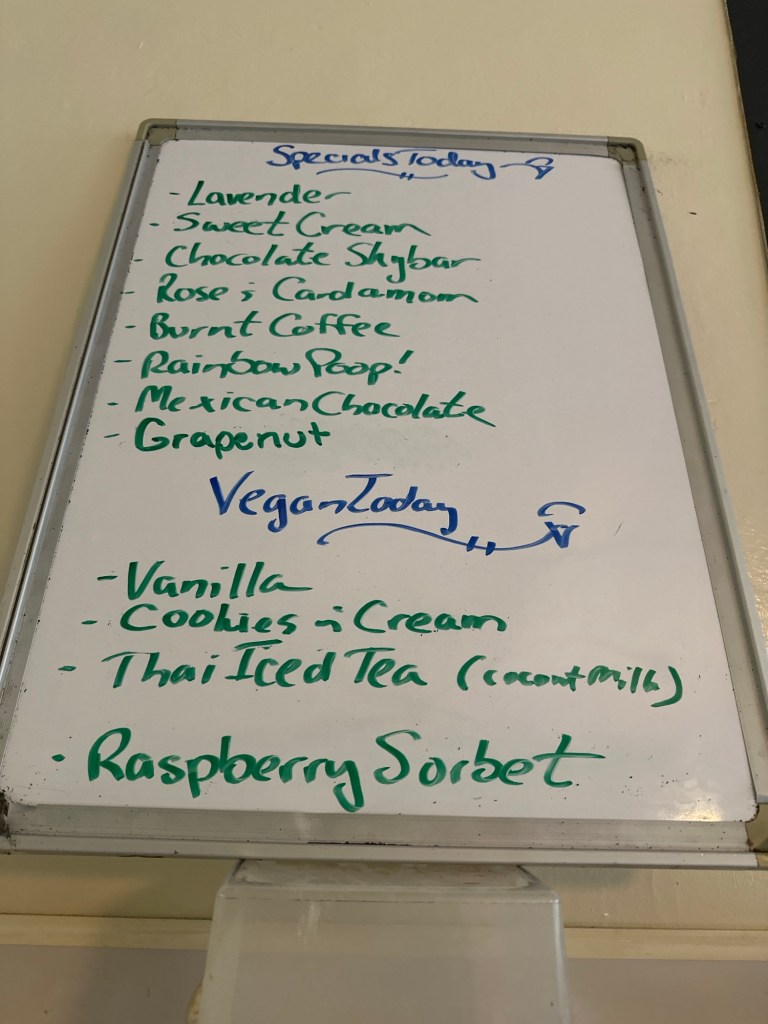 Specials Today
- Lavender
- Sweet Cream
- Chocolate Skybar
- Rose & Cardamom
- Burnt Coffee
- Rainbow Poop!
- Mexican Chocolate
- Grapenut
Vegan Today
- Vanilla
- Cookies & Cream
- Thai Iced Tea (coconut milk)
- Raspberry Sorbet